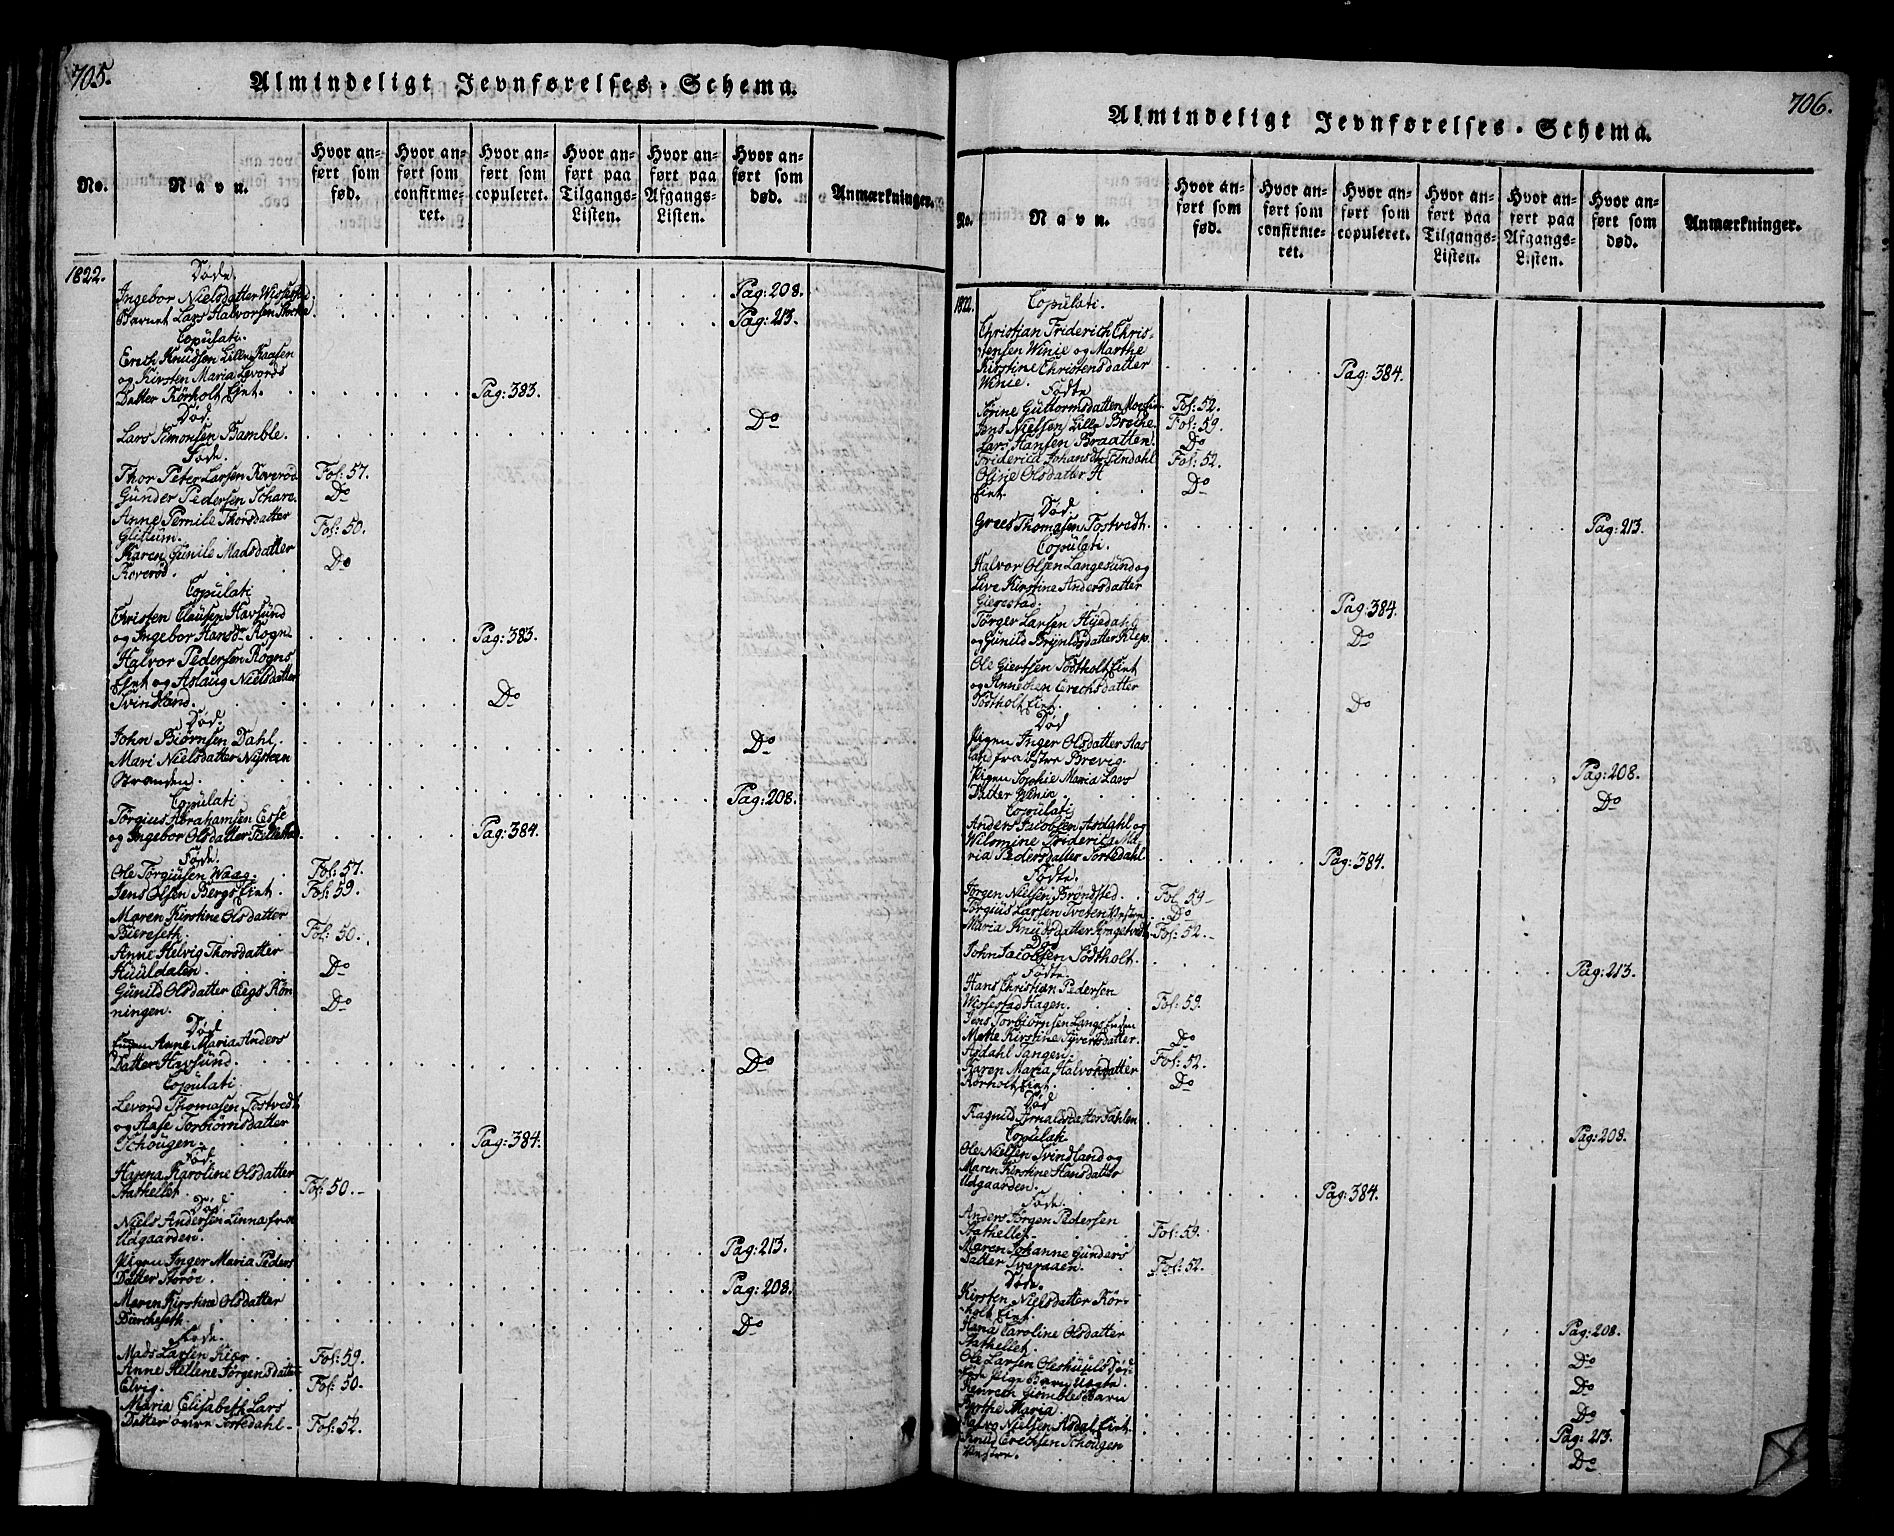 705.
Almindeligt Jevnførelses-Schema.
No.
Navn.
Hvor anført som fød.
Hvor anført som confirmeret.
Hvor anført som copuleret.
Hvor anført paa Tilgangs-Listen.
Hvor anført paa Afgangs-Listen.
Hvor anført som død.
Anmærkninger.
1822.
Døde.
Ingebor Nielsdatter Wissestad Pag: 208.
Barnet Lars Halvorsen Pag: 213.
Copulati.
Erich Knudsen Lille Kaasen
og Kirsten Maria Levords
Datter Kørholt Eint. Pag: 383.
Død.
Lars Simonsen Bamble. Do
Føde.
Thor Peter Larsen Roverød Fol: 57.
Gunder Pedersen Schare. Do
Anne Pernile Thorsdatter
Glittum. Fol: 50.
Karen Gunile Madsdatter
Roverød. Do
Copulati
Christen Clausen Havsund
og Ingebor Hansdr Rogn Pag: 383.
Halvor Pedersen Rogns
Eint og Aslaug Nielsdatter
Svindland. Do
Død.
John Biørnsen Dahl. Do
Mari Nielsdatter Nystran
Stranden. Pag: 208.
Copulati
Torgius Abrahamsen Esse
og Ingebor Olsdatter Pag: 384.
Føde.
Ole Torgiusen Waag. Fol: 57.
Jens Olsen Bergs Eint. Fol: 59.
Maren Kirstine Olsdatter
Biereseth. Fol: 50.
Anne Helvig Thorsdatter
Huuldalen. Do
Gunild Olsdatter Eegs Røn
ningen. Do
Død
Anne Maria Anders
Datter Havsund. Do
Copulati
Levord Thomasen Tostvedt
og Aase Torbiørnsdatter
Schougen. Pag: 384.
Fød.
Hanna Karoline Olsdatter
Stathellet. Fol: 50.
Død.
Niels Andersen Linna fra
Udgaarden. Pag: 213.
Pigen Inger Maria Peders
Datter Storøe. Pag: 208.
Maren Kirstina Olsdatter
Biercheseth Do
Føde.
Mads Larsen Kiær. Fol: 59.
Anne Hellene Jørgensdatter
Elvig. Fol: 50.
Maria Elisabeth Lars
Datter Tortedahl Fol: 52.
706.
Almindeligt Jevnførelses-Schema.
No.
Navn.
Hvor anført som fød.
Hvor anført som confirmeret.
Hvor anført som copuleret.
Hvor anført paa Tilgangs-Listen.
Hvor anført paa Afgangs-Listen.
Hvor anført som død.
Anmærkninger.
1822.
Copulati.
Christian Friderich Chris-
tensen Winie og Marthe
Kirstine Christensdatter
Winie. Pag: 384.
Fødte
Sørine Guttormsdatter Fol: 52.
Jens Nielsen Lille Breche Fol: 59.
Lars Hansen Braatten. Do
Friderica Johansdr Findahl Fol: 52.
Oline Olsdatter H
Eint. Do
Død
Grees Thomasen Tostvedt. Pag: 213.
Copulati.
Halvor Olsen Langesund og
Live Kirstine Andersdatter
Giegestad. Pag: 384.
Tørger Larsen Hyedahl
og Gunild Brynildsdatter Klep Do
Ole Giertsen Tødtholt Eint
og Annechen Erechsdatter
Tødtholt Eint. Do
Død
Pigen Inger Olsdatter Aas
land fra østre Brevig. Pag: 208.
Pigen Sophie Maria Lars
Datter Winie. Do
Copulati
Anders Jacobsen Asdahl og
Wilomine Friderica Ma
ria Pedersdatter Tortedahl Pag: 384.
Fødte.
Jørgen Nielsen Brøndsted. Fol: 59
Torgius Larsen Tveten Do
Maria Knudsdatter Fol: 52.
Død
John Jacobsen Tødtholt. Pag: 213.
Fødte.
Hans Christian Pedersen
Wissestad Hagen. Fol: 59.
Jens Torbiørnsen Langs Enden Do
Mette Kirstine Syversdatter.
Asdahl Tangen. Fol: 52.
Karen Maria Halvorsdatter
Kørholt Eint. Do
Død
Ragnild Arnoldsdatter Dahlen Pag: 208.
Copulati
Ole Nielsen Svindland og
Maren Kirstine Hansdatter
Udgaarden. Pag: 384.
Føde.
Anders Jørgen Pedersen
Stathellet. Fol: 59.
Maren Johanne Gunders
Datter Fol: 52.
Døde.
Kirsten Nielsdatter Kør-
holt Eint. Pag: 208.
Hana Caroline Olsdatter
Stathellet. Do
Ole Larsen Do
Barn
Dorthe Maria Do
Nielsen Asdal Eint. Pag: 213.
Knud Erechsen Schougen
Do